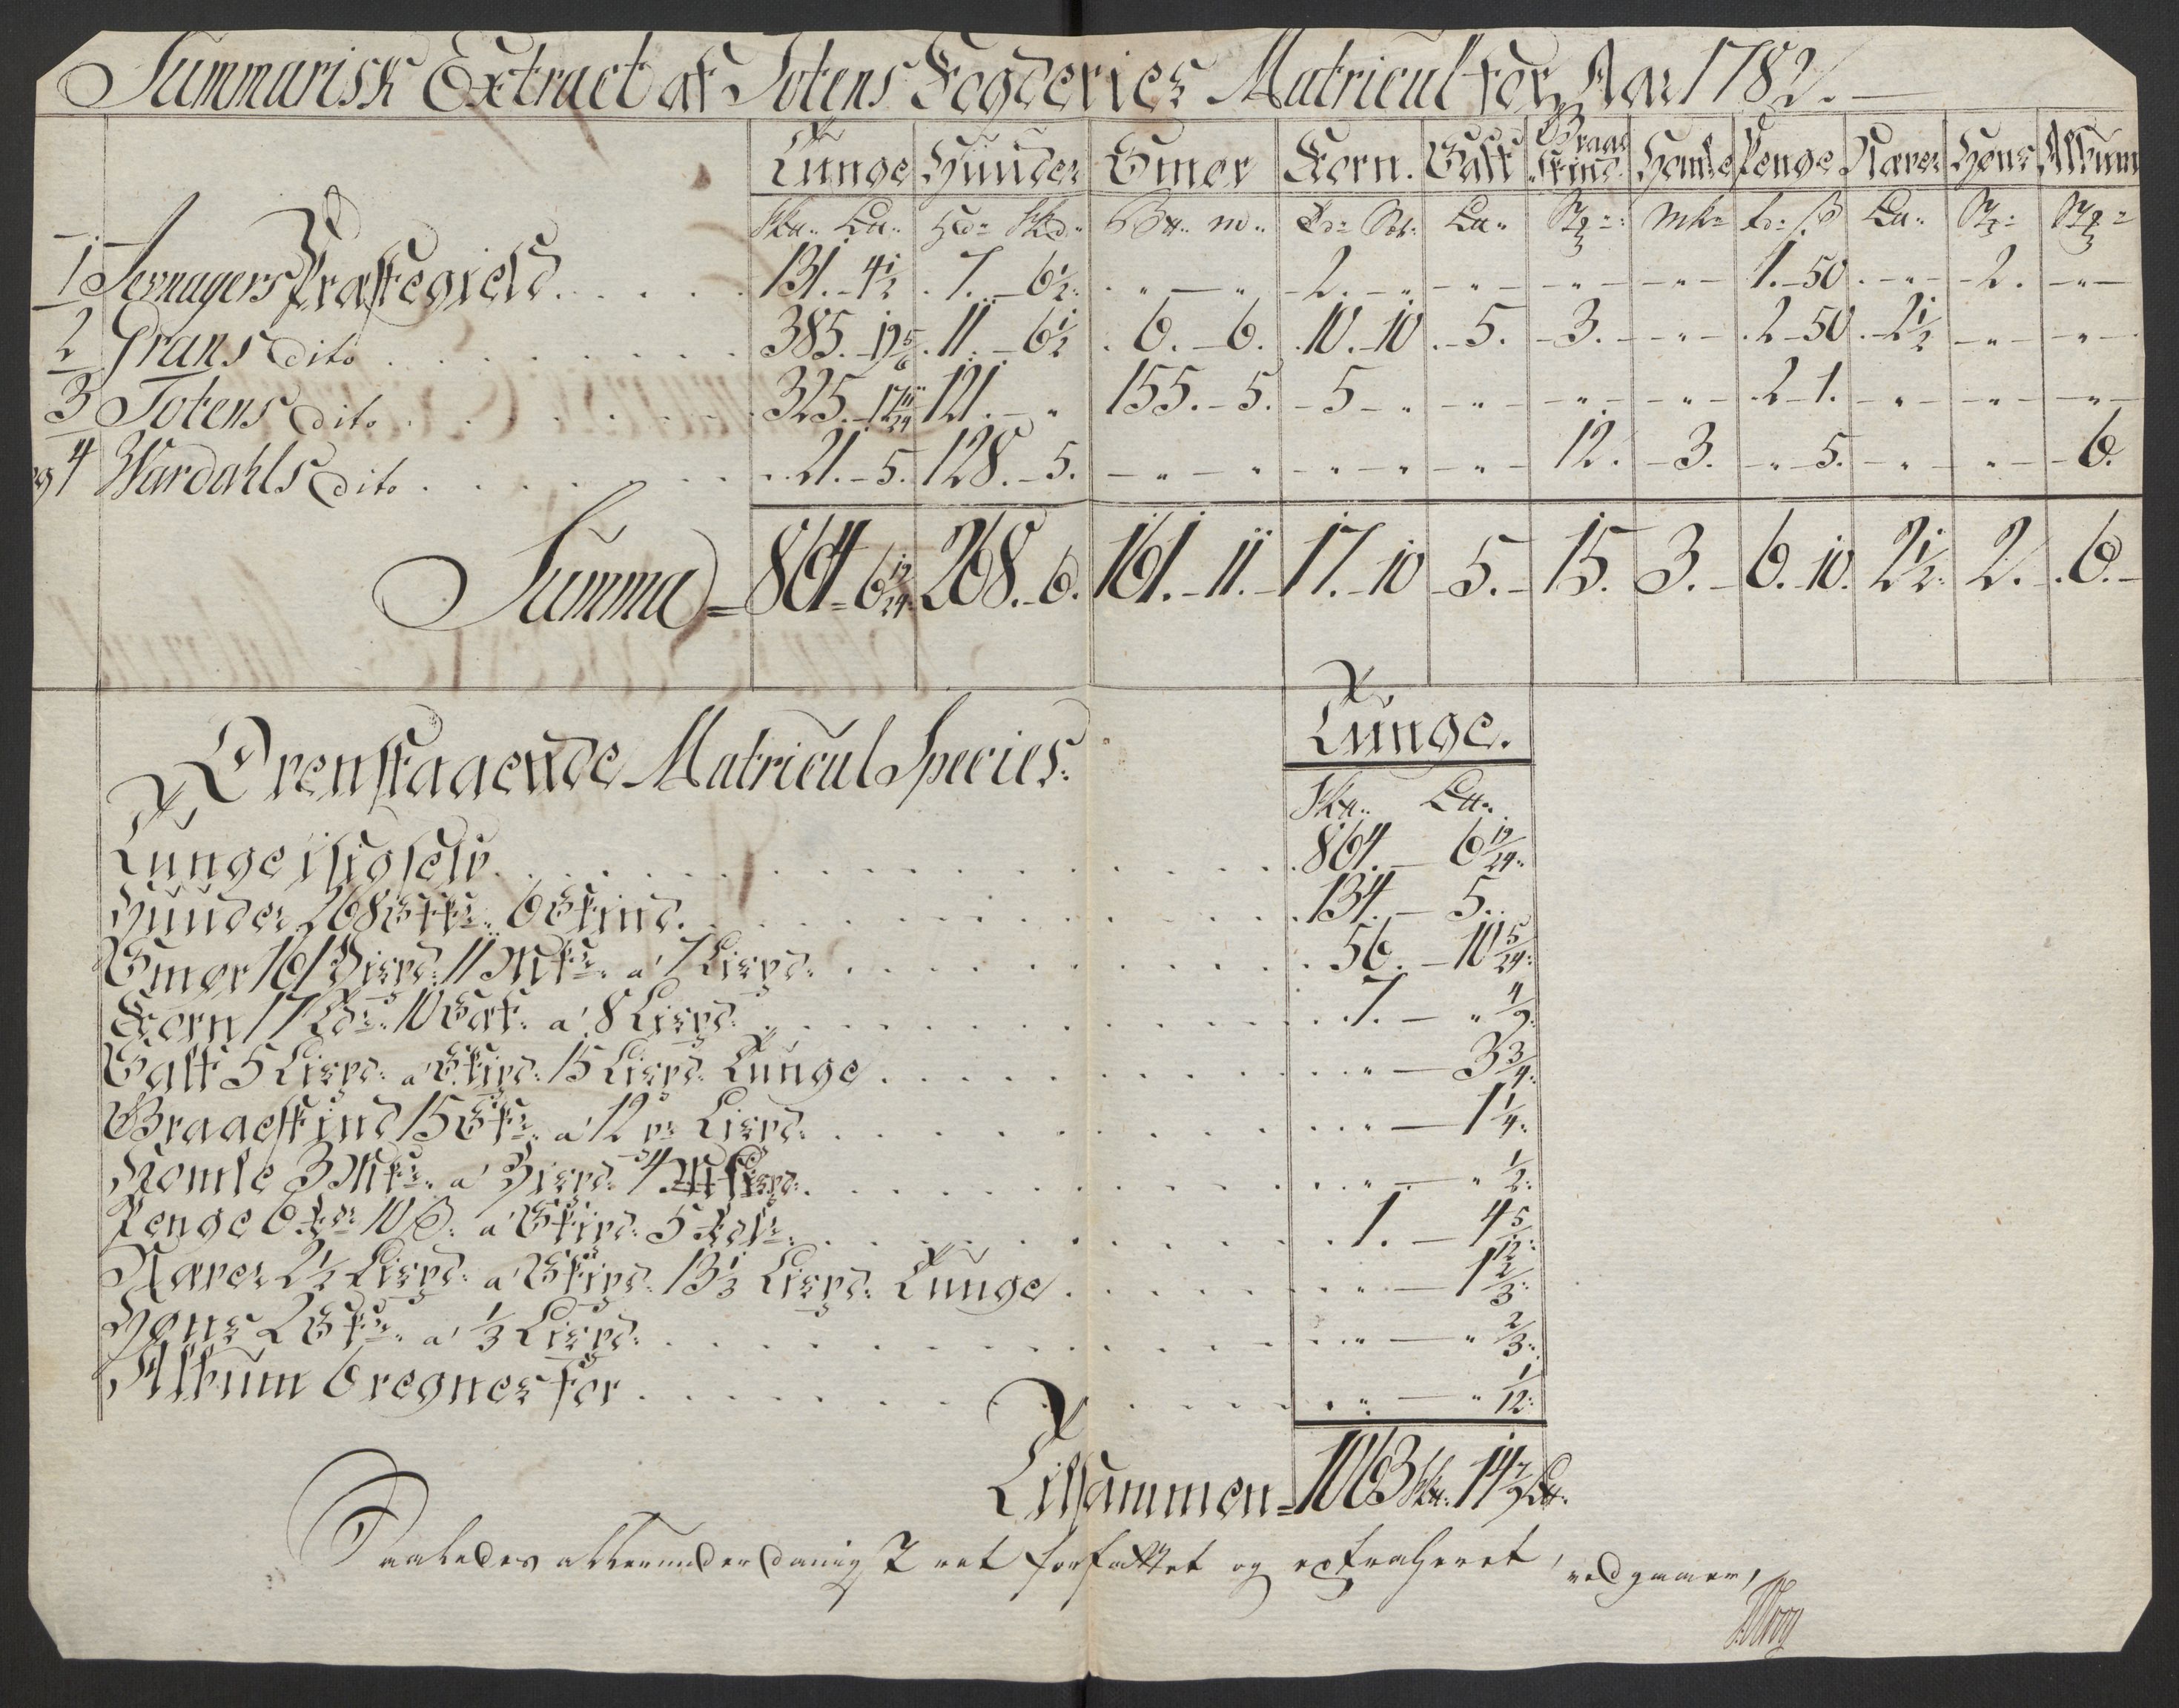 Summarisk Extract af Totens Fogderies Matricul for Aar 1782.
Tunge Huuder Smør Korn. Salt Braaeskind. Homle Penge Næver Høns Album
Sk℔. L℔. Hd: Skd. B℔. m. Td: Set: L℔. Stz: mk: rd: ß L℔. Stz: Stz:
1 Jevnagers Præstegield 131. 4 1/2 7. 6 1/2 " " 2. " " " " 1. 50 " 2. "
2 Grans dito 385. 19 5/6 11. 6 1/2 6. 6. 10. 10 5. 3. " 2 50 2 1/2 " "
3 Totens dito 325. 17 11/24 121. " 155. 5. 5 " " " " 2 1. " " "
4 Wardahls dito 21. 5. 128. 5. " " " " " 12. 3. " 5. " " 6.
Summa = 864 6 19/24 268. 6. 161. 11. 17. 10 5. 15. 3. 6. 10. 2 1/2 2. 6.
Ovenstaaende Matricul Species.
Tunge.
Sk℔. L℔.
Tunge i sig selv 864. 6 19/24
Huuder 268 Stk: 6 Skind. 134. 5.
Smør 161 Bispd: 11 Mk: a 7 Lispd: 56. 10 5/24
Korn 17 Td: 10 Sæt: a 8 Lispd: 7. " 4/9
Salt 5 Lispd: a Skipd: 15 Lispd: Tunge " 3 3/4
Braaeskind 15 Stk: a 12 pr Lispd: " 1 1/4
Homle 3 Mk: a Bispd: 4 Lispd: " " 1/2
Penge 6 rd: 10 ß: a Skipd: 5 rdlr: 1. 4 5/12
Næver 2 1/2 Lispd: a Skipd: 13 1/3 Lispd: Tunge " 1 2/3
Høns 2 Stk: a 1/3 Lispd: " " 2/3
Album 6 regnes for " " 1/12
Tilsammen = 1063 Sk℔. 14 7/9 L℔.
Saaledes allerunderdanigst ret forfattet og extraheret, vedgaaer,